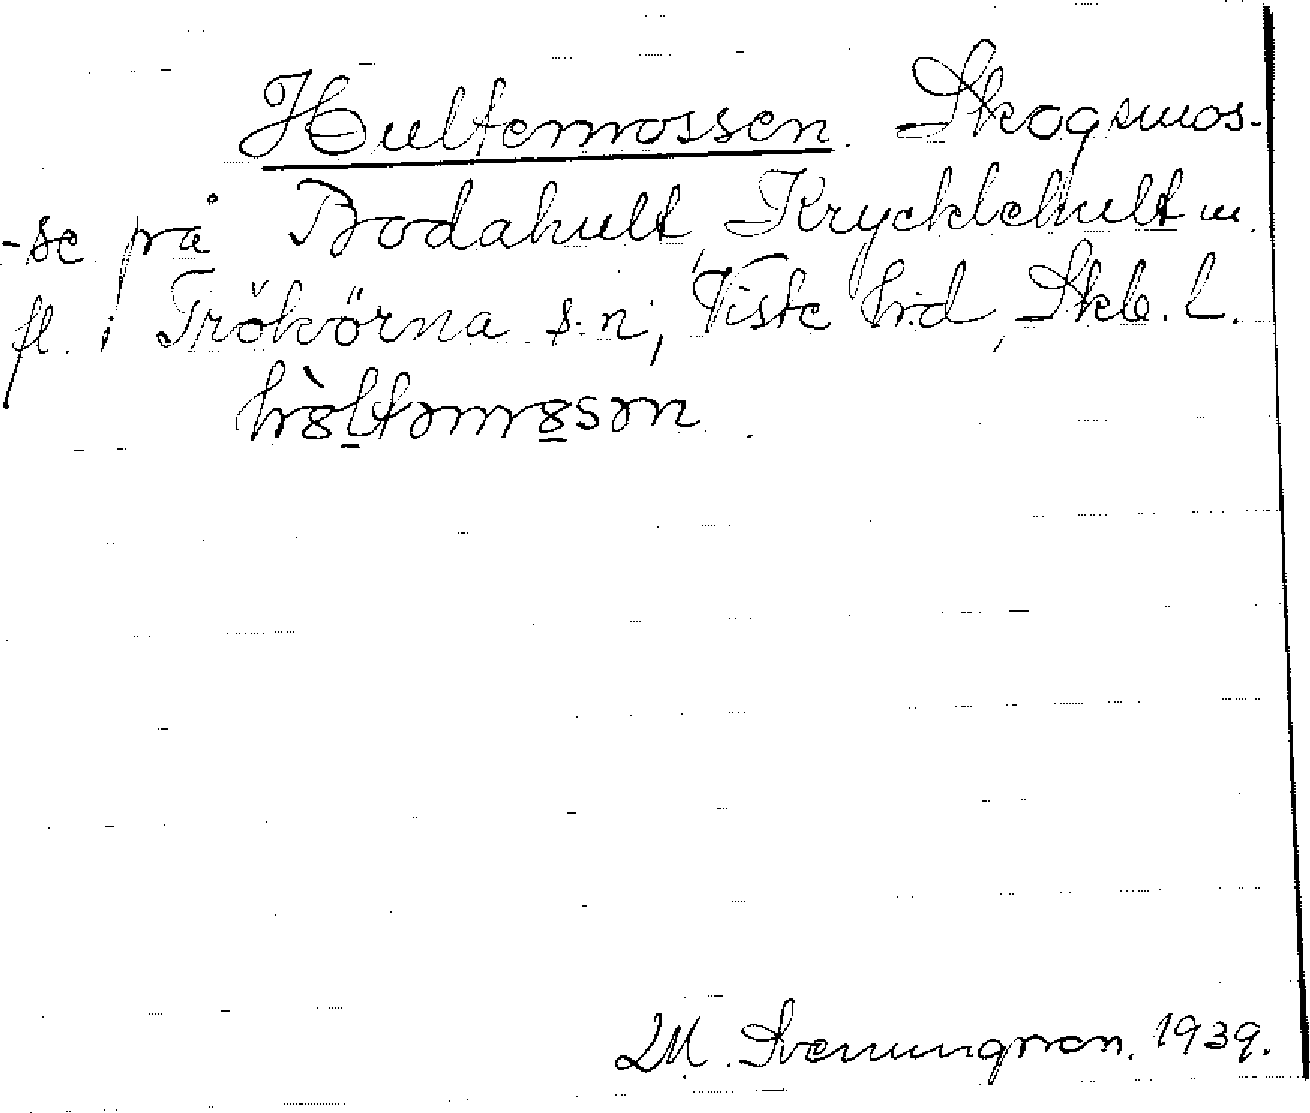 Hultemossen. Skogsmos-
-se på Bodahult, Krycklehult m.
fl. i Trökörna s:n, Viste hrd, Skb. l.
hòltəmosən.
M. Svenungsson. 1939.